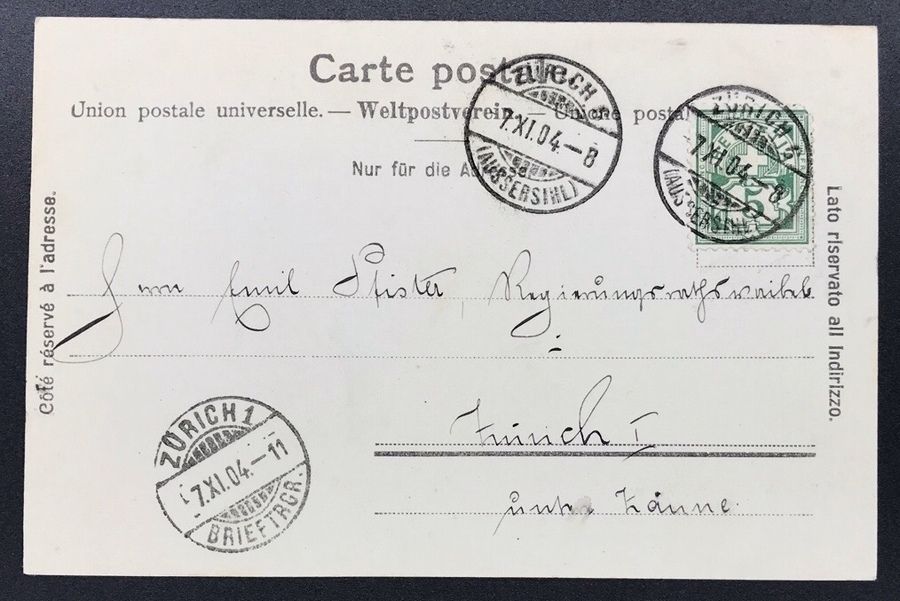 Carte postale
Union postale universelle. — Weltpostverein — Unione postal
Nur für die A
Côté réservé à l'adresse.
Lato riservato all Indirizzo.
ZÜRICH
7.XI.04.–8
(AUSSERSIHL)
ZÜRICH
7.XI.04.–8
(AUSSERSIHL)
5
Herrn Emil Pfister, Regierungsrathswaibel
Zürich I
untere Zäune.
ZÜRICH 1
7.XI.04.–11
BRIEFTRGR.